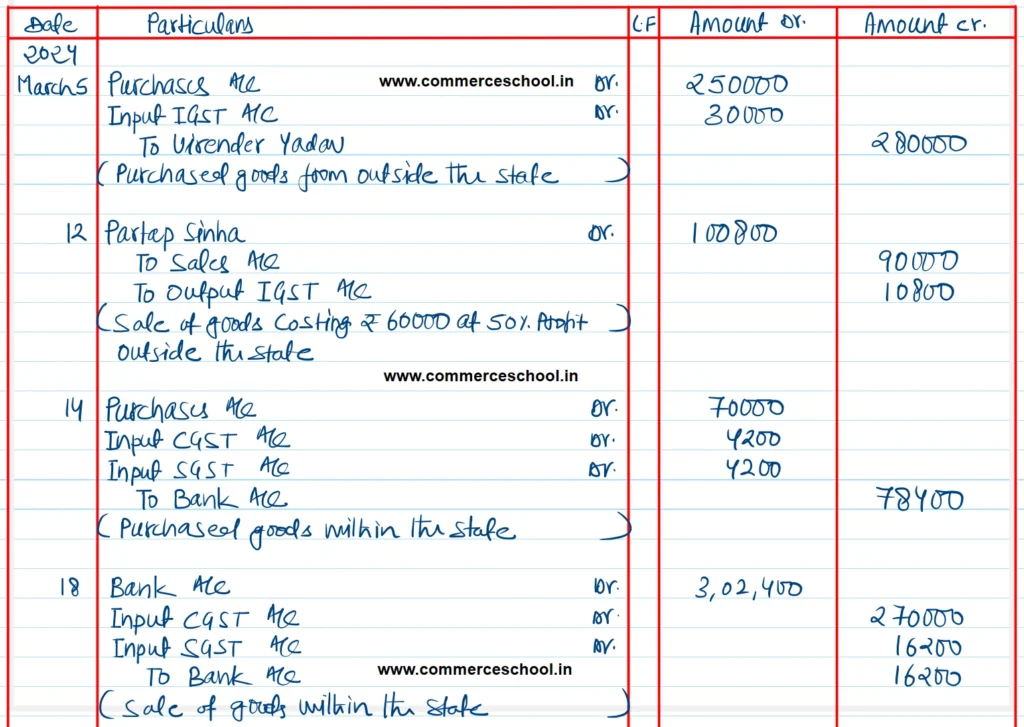 Date Particulars L.F Amount Dr. Amount Cr.
2024
March 5 Purchases A/c www.commerceschool.in Dr. 250000
Input IGST A/C Dr. 30000
To Virender Yadav 280000
(Purchased goods from outside the state)
12 Partap Sinha Dr. 100800
To Sales A/c 90000
To Output IGST A/c 10800
(Sale of goods Costing ₹ 60000 at 50% Profit)
outside the state
www.commerceschool.in
14 Purchases A/c Dr. 70000
Input CGST A/c Dr. 4200
Input SGST A/c Dr. 4200
To Bank A/c 78400
(Purchased goods within the state)
18 Bank A/c Dr. 3,02,400
Input CGST A/c Dr. 270000
Input SGST A/c Dr. 16200
To Bank A/c www.commerceschool.in 16200
(Sale of goods within the state)